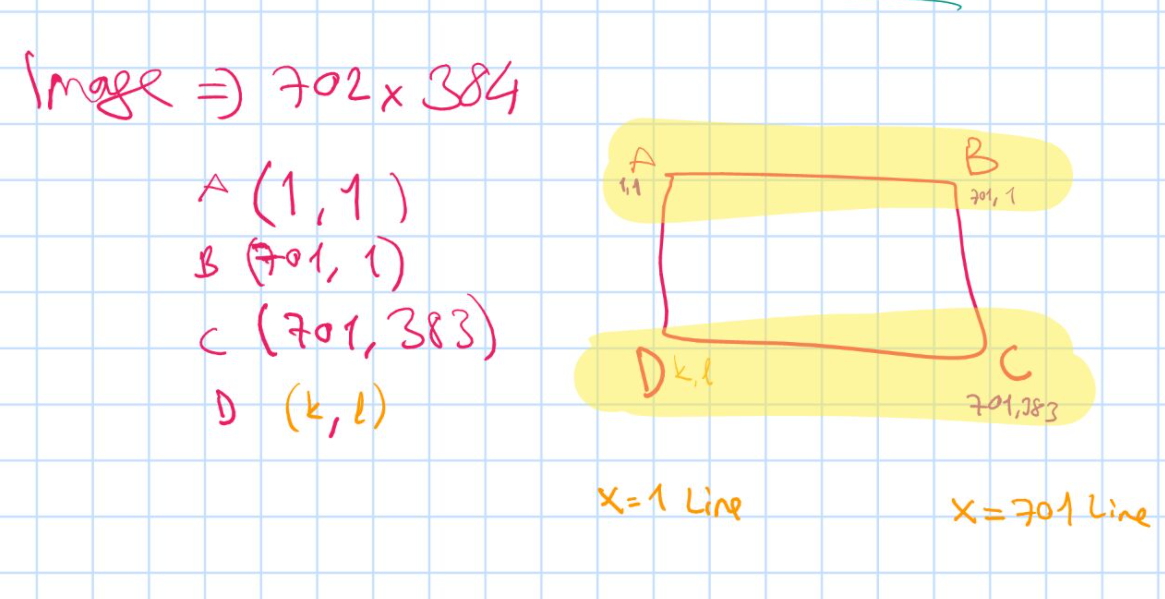 Image => 702 x 384
A (1, 1)
B (701, 1)
C (701, 383)
D (k, l)
A
1,1
B
701, 1
D k, l
C
701,383
X=1 Line
X=701 Line